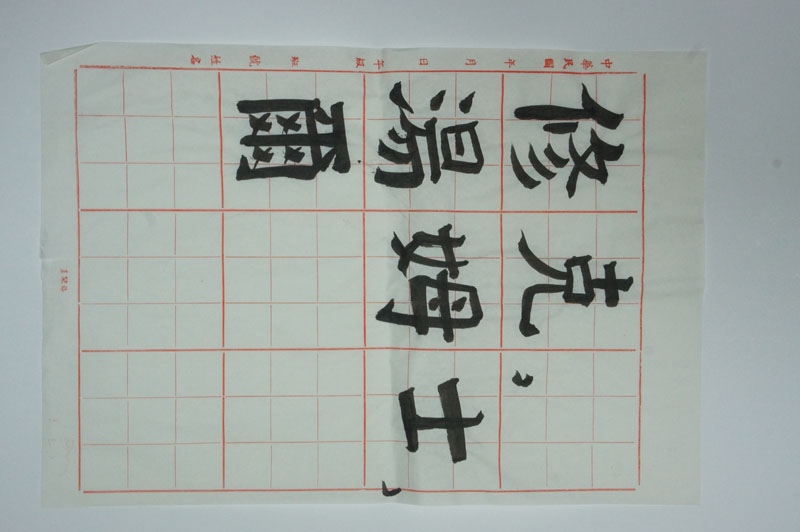 修克，
湯姆士，
爾
中華民國 年 月 日 年級 班 號 姓名